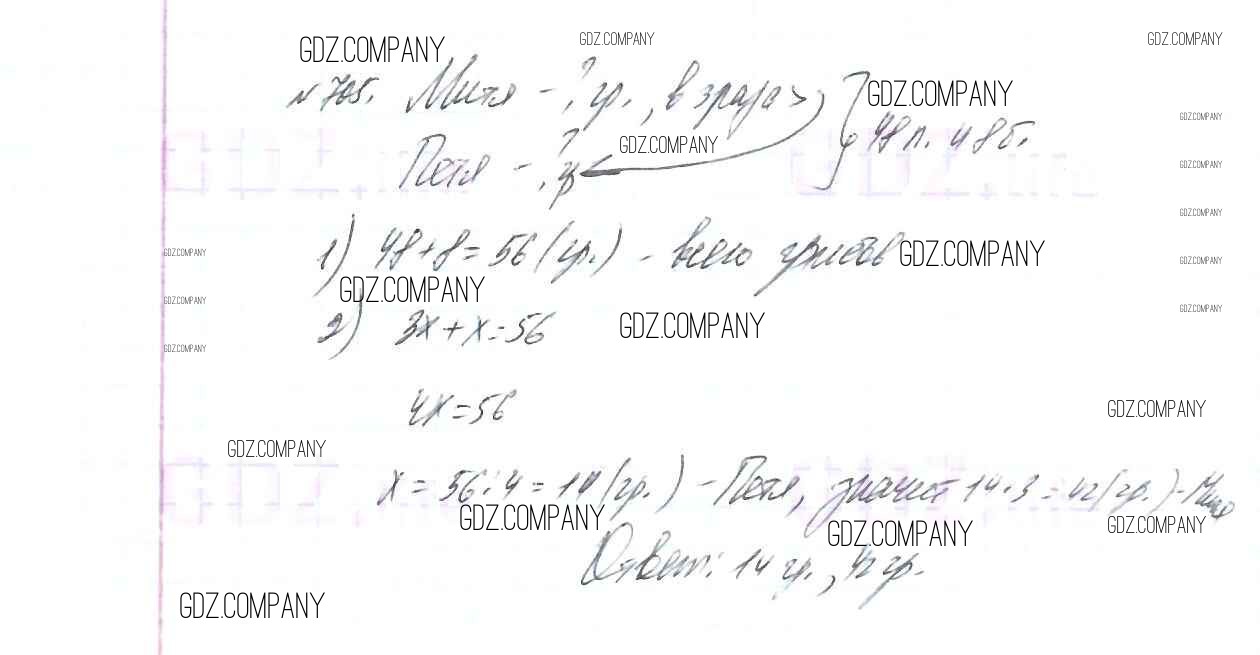 GDZ.COMPANY GDZ.COMPANY GDZ.COMPANY
№ 705. Митя - ? гр., в 3 раза > GDZ.COMPANY
GDZ.COMPANY
Петя - ? гр GDZ.COMPANY 48 п. и 8 б.
GDZ.COMPANY
GDZ.COMPANY
1) 48+8=56 (гр.) - всего грибов GDZ.COMPANY
GDZ.COMPANY GDZ.COMPANY
GDZ.COMPANY GDZ.COMPANY
GDZ.COMPANY
2) 3х+х=56 GDZ.COMPANY
GDZ.COMPANY
4х=56
GDZ.COMPANY
GDZ.COMPANY
х = 56:4=14 (гр.) - Петя, значит 14·3=42 (гр.) - Митя
GDZ.COMPANY GDZ.COMPANY GDZ.COMPANY
Ответ: 14 гр., 42 гр.
GDZ.COMPANY